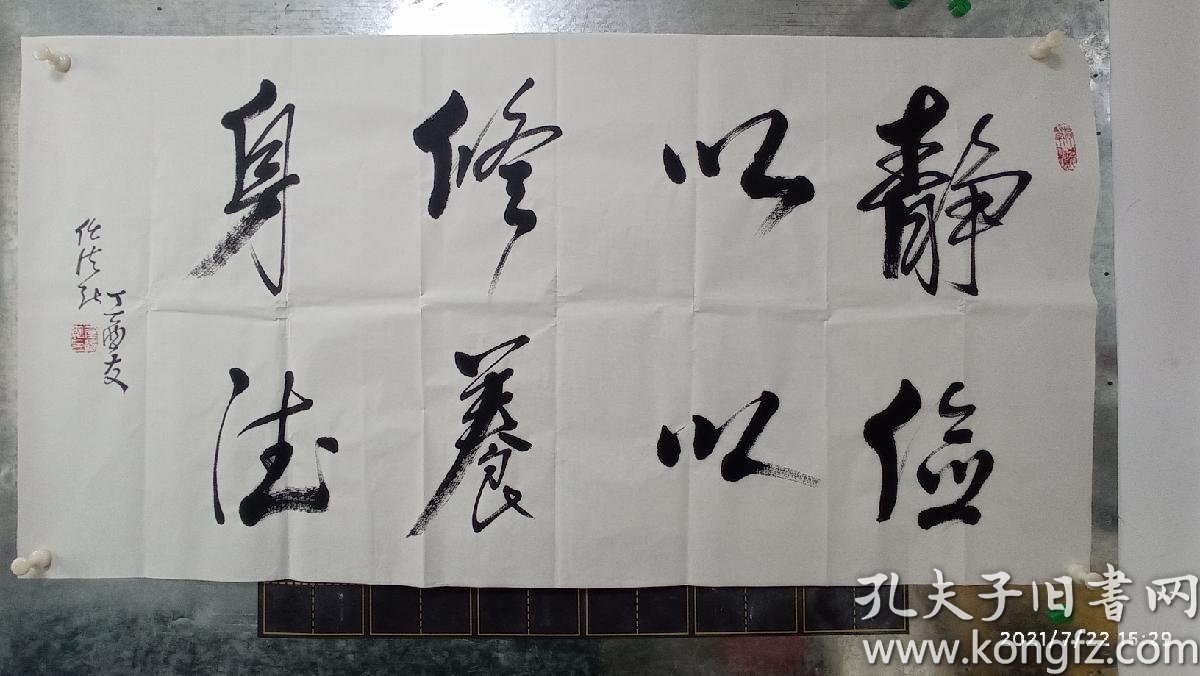 静以修身
俭以養德
丁酉
任法融
孔夫子旧书网
2021/7/22 15:29
www.kongfz.com